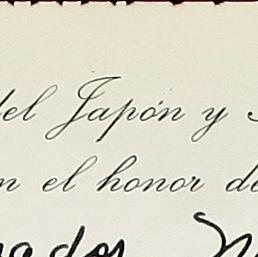 del Japón y
n el honor de
ados